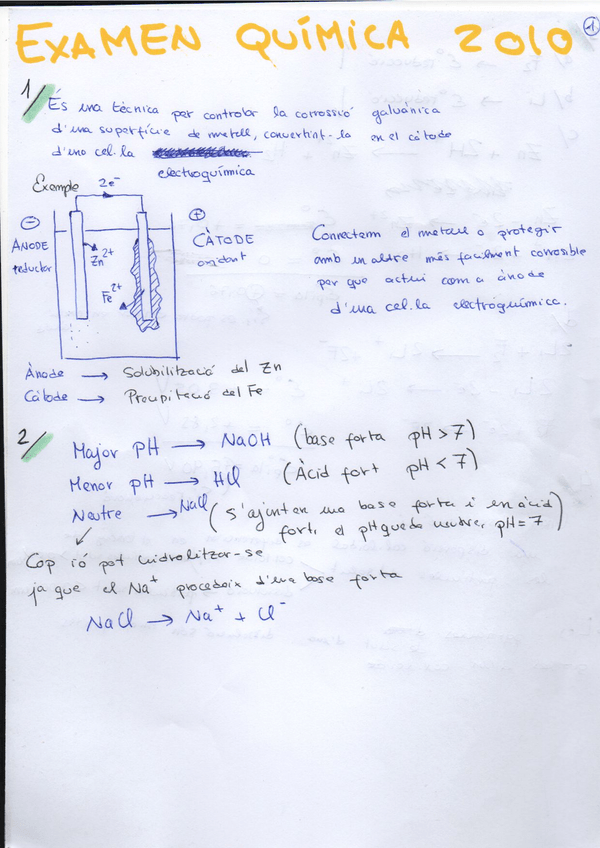 EXAMEN QUÍMICA 2010
1
1/
És una tècnica per controlar la corrossió galvànica
d'una superfície de metall, convertint-la en el càtode
d'una cel.la
electroquímica
Exemple
2e⁻
⊖
⊕
ÀNODE
reductor
Zn²⁺
Fe²⁺
CÀTODE
oxidant
Connectem el metall a protegir
amb un altre més facilment corrosible
per que actui com a ànode
d'una cel.la electroquímica.
Ànode → Solubilització del Zn
Càtode → Precipitació del Fe
2/
Major pH → NaOH (base forta pH > 7)
Menor pH → HCl (Àcid fort pH < 7)
Neutre → NaCl (S'ajunten una base forta i un àcid
fort, el pH queda neutre, pH = 7)
Cap ió pot hidrolitzar-se
ja que el Na⁺ procedeix d'una base forta
NaCl → Na⁺ + Cl⁻